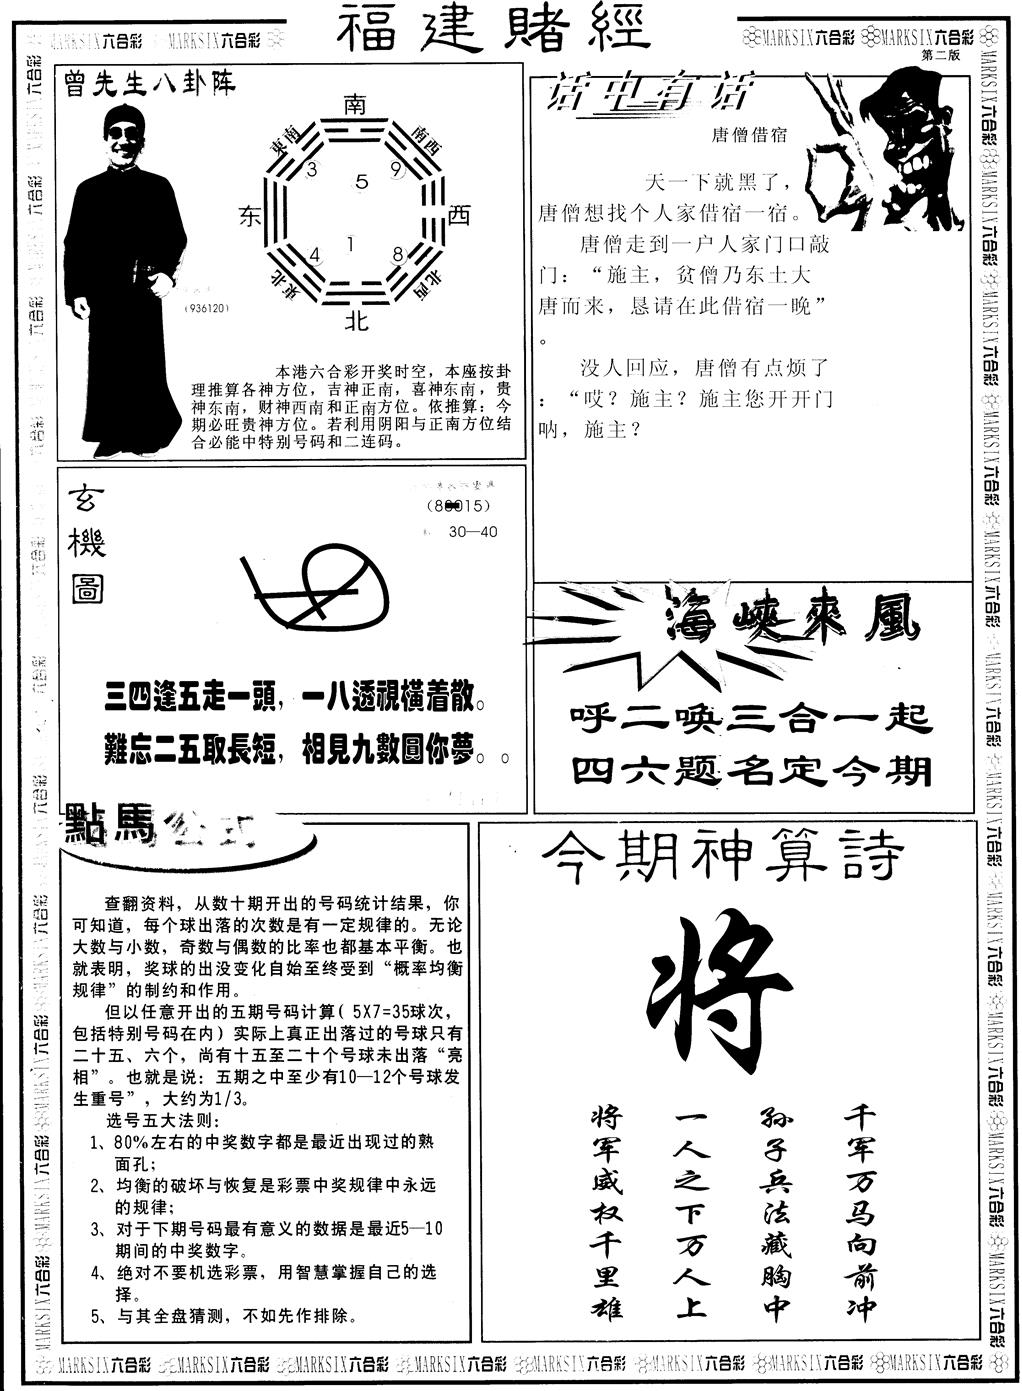 福建賭經
MARKSIX六合彩 MARKSIX六合彩
MARKSIX六合彩 MARKSIX六合彩
第二版
曾先生八卦阵
南
東南 南西
3 9
5
东 西
1
4 8
東北 北西
北
(936120)
本港六合彩开奖时空，本座按卦
理推算各神方位，吉神正南，喜神东南，贵
神东南，财神西南和正南方位。依推算：今
期必旺贵神方位。若利用阴阳与正南方位结
合必能中特别号码和二连码。
话中有话
唐僧借宿
天一下就黑了，
唐僧想找个人家借宿一宿。
唐僧走到一户人家门口敲
门：“施主，贫僧乃东土大
唐而来，恳请在此借宿一晚”
。
没人回应，唐僧有点烦了
：“哎？施主？施主您开开门
呐，施主？
玄機圖
30—40
三四逢五走一頭，一八透視橫着散。
難忘二五取長短，相見九數圓你夢。。
海峽來風
呼二唤三合一起
四六题名定今期
點馬公式
查翻资料，从数十期开出的号码统计结果，你
可知道，每个球出落的次数是有一定规律的。无论
大数与小数，奇数与偶数的比率也都基本平衡。也
就表明，奖球的出没变化自始至终受到“概率均衡
规律”的制约和作用。
但以任意开出的五期号码计算( 5X7=35球次，
包括特别号码在内) 实际上真正出落过的号球只有
二十五、六个，尚有十五至二十个号球未出落“亮
相”。也就是说：五期之中至少有10—12个号球发
生重号”，大约为1/3。
选号五大法则：
1、80%左右的中奖数字都是最近出现过的熟
面孔；
2、均衡的破坏与恢复是彩票中奖规律中永远
的规律；
3、对于下期号码最有意义的数据是最近5—10
期间的中奖数字。
4、绝对不要机选彩票，用智慧掌握自己的选
择。
5、与其全盘猜测，不如先作排除。
今期神算詩
将
千军万马向前冲
孙子兵法藏胸中
一人之下万人上
将军威权千里雄
MARKSIX六合彩 MARKSIX六合彩 MARKSIX六合彩 MARKSIX六合彩 MARKSIX六合彩 MARKSIX六合彩 MARKSIX六合彩 MARKSIX六合彩